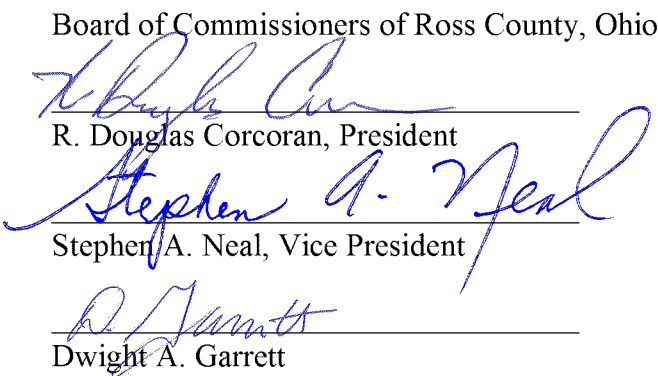 Board of Commissioners of Ross County, Ohio
R. Douglas Corcoran, President
Stephen A. Neal
Stephen A. Neal, Vice President
Dwight A. Garrett